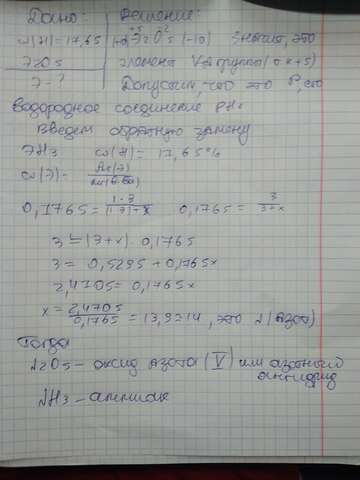 Дано: Решение:
ω(H)=17,65 Э2O5 (-10) Значит, это
Э2O5 элемент V-й группы (ок+5)
Э-? Допустим, что это P, его
водородное соединение PH₃
Введем обратную замену
ЭH3 ω(H)=17,65%
0,1765 = 0,1765 = 3/3+x
3 = (3+x)·0,1765
3 = 0,5295 + 0,1765x
2,4705 = 0,1765x
x = 2,4705/0,1765 = 13,9≈14, это N (Азот)
Тогда
N2O5 - оксид азота (V) или азотный
ангидрид
NH3 - аммиак